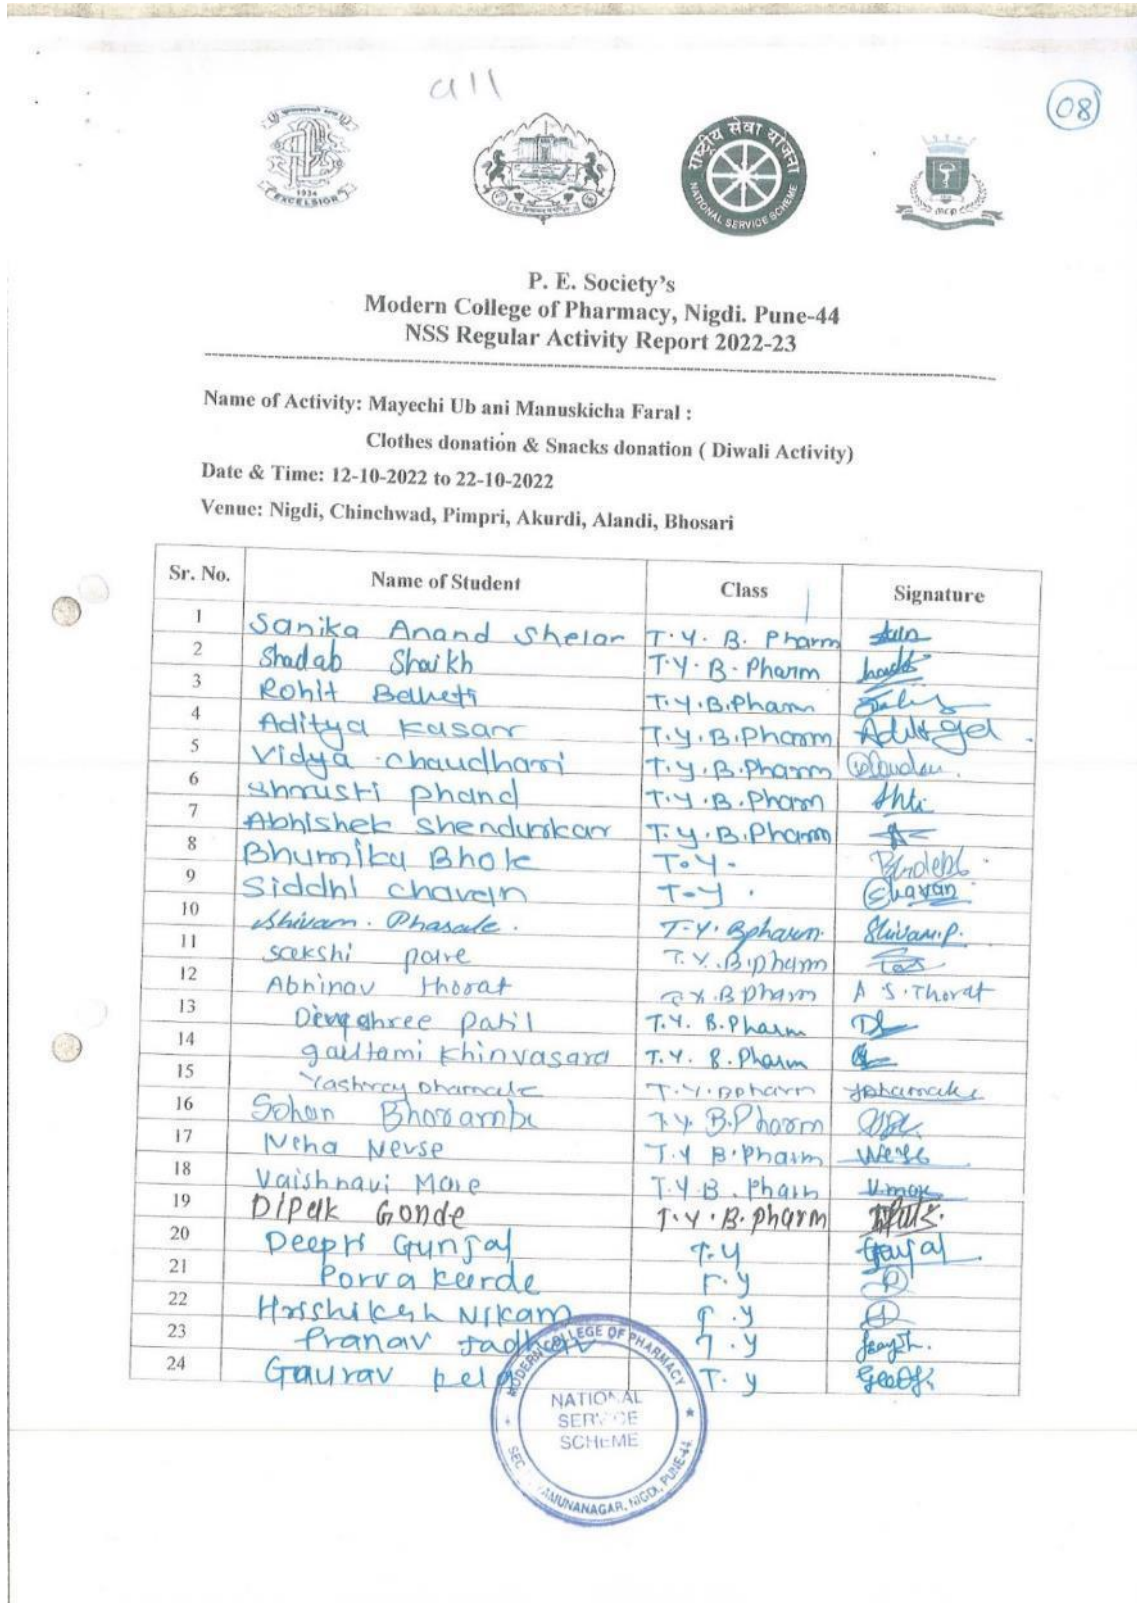 all
08
1934
EXCELSIOR
राष्ट्रीय सेवा योजना
NATIONAL SERVICE SCHEME
MCP
P. E. Society's
Modern College of Pharmacy, Nigdi. Pune-44
NSS Regular Activity Report 2022-23
Name of Activity: Mayechi Ub ani Manuskicha Faral :
Clothes donation & Snacks donation ( Diwali Activity)
Date & Time: 12-10-2022 to 22-10-2022
Venue: Nigdi, Chinchwad, Pimpri, Akurdi, Alandi, Bhosari
Sr. No. Name of Student Class Signature
1 Sanika Anand Shelar T.Y. B. Pharm
2 Shadab Shaikh T.Y.B.Pharm
3 Rohit T.Y.B.Pharm
4 Aditya Kasar T.Y.B.Pharm
5 Vidya chaudhari T.Y.B.Pharm
6 Shrusti phand T.Y.B.Pharm
7 Abhishek Shendurkar T.Y.B.Pharm
8 Bhumika Bhole T.Y.
9 Siddhi chavan T.Y. Chavan
10 Shivam. Phasale. T.Y. Bpharm. Shivam.P.
11 sakshi pare T.Y.B.pharm
12 Abhinav thorat T.Y.B pharm A S.Thorat
13 Devashree patil T.Y. B.Pharm
14 gautami khinvasara T.Y. B.Pharm
15 Yashraj Dhamale T.Y.Bpharm
16 Sohan Bhorambe T.Y. B.Pharm
17 Neha Nevse T.Y B.Pharm
18 Vaishnavi More T.Y.B. Pharm V.more
19 Dipak Gonde T.Y.B.pharm
20 Deepti Gunjal T.Y Gunjal
21 Porva keerde T.Y
22 Hrishikesh Nikam T.Y
23 Pranav Jadhav T.Y
24 Gaurav T.Y
MODERN COLLEGE OF PHARMACY
NATIONAL
SERVICE
SCHEME
SEC YAMUNANAGAR, NIGDI, PUNE-44.